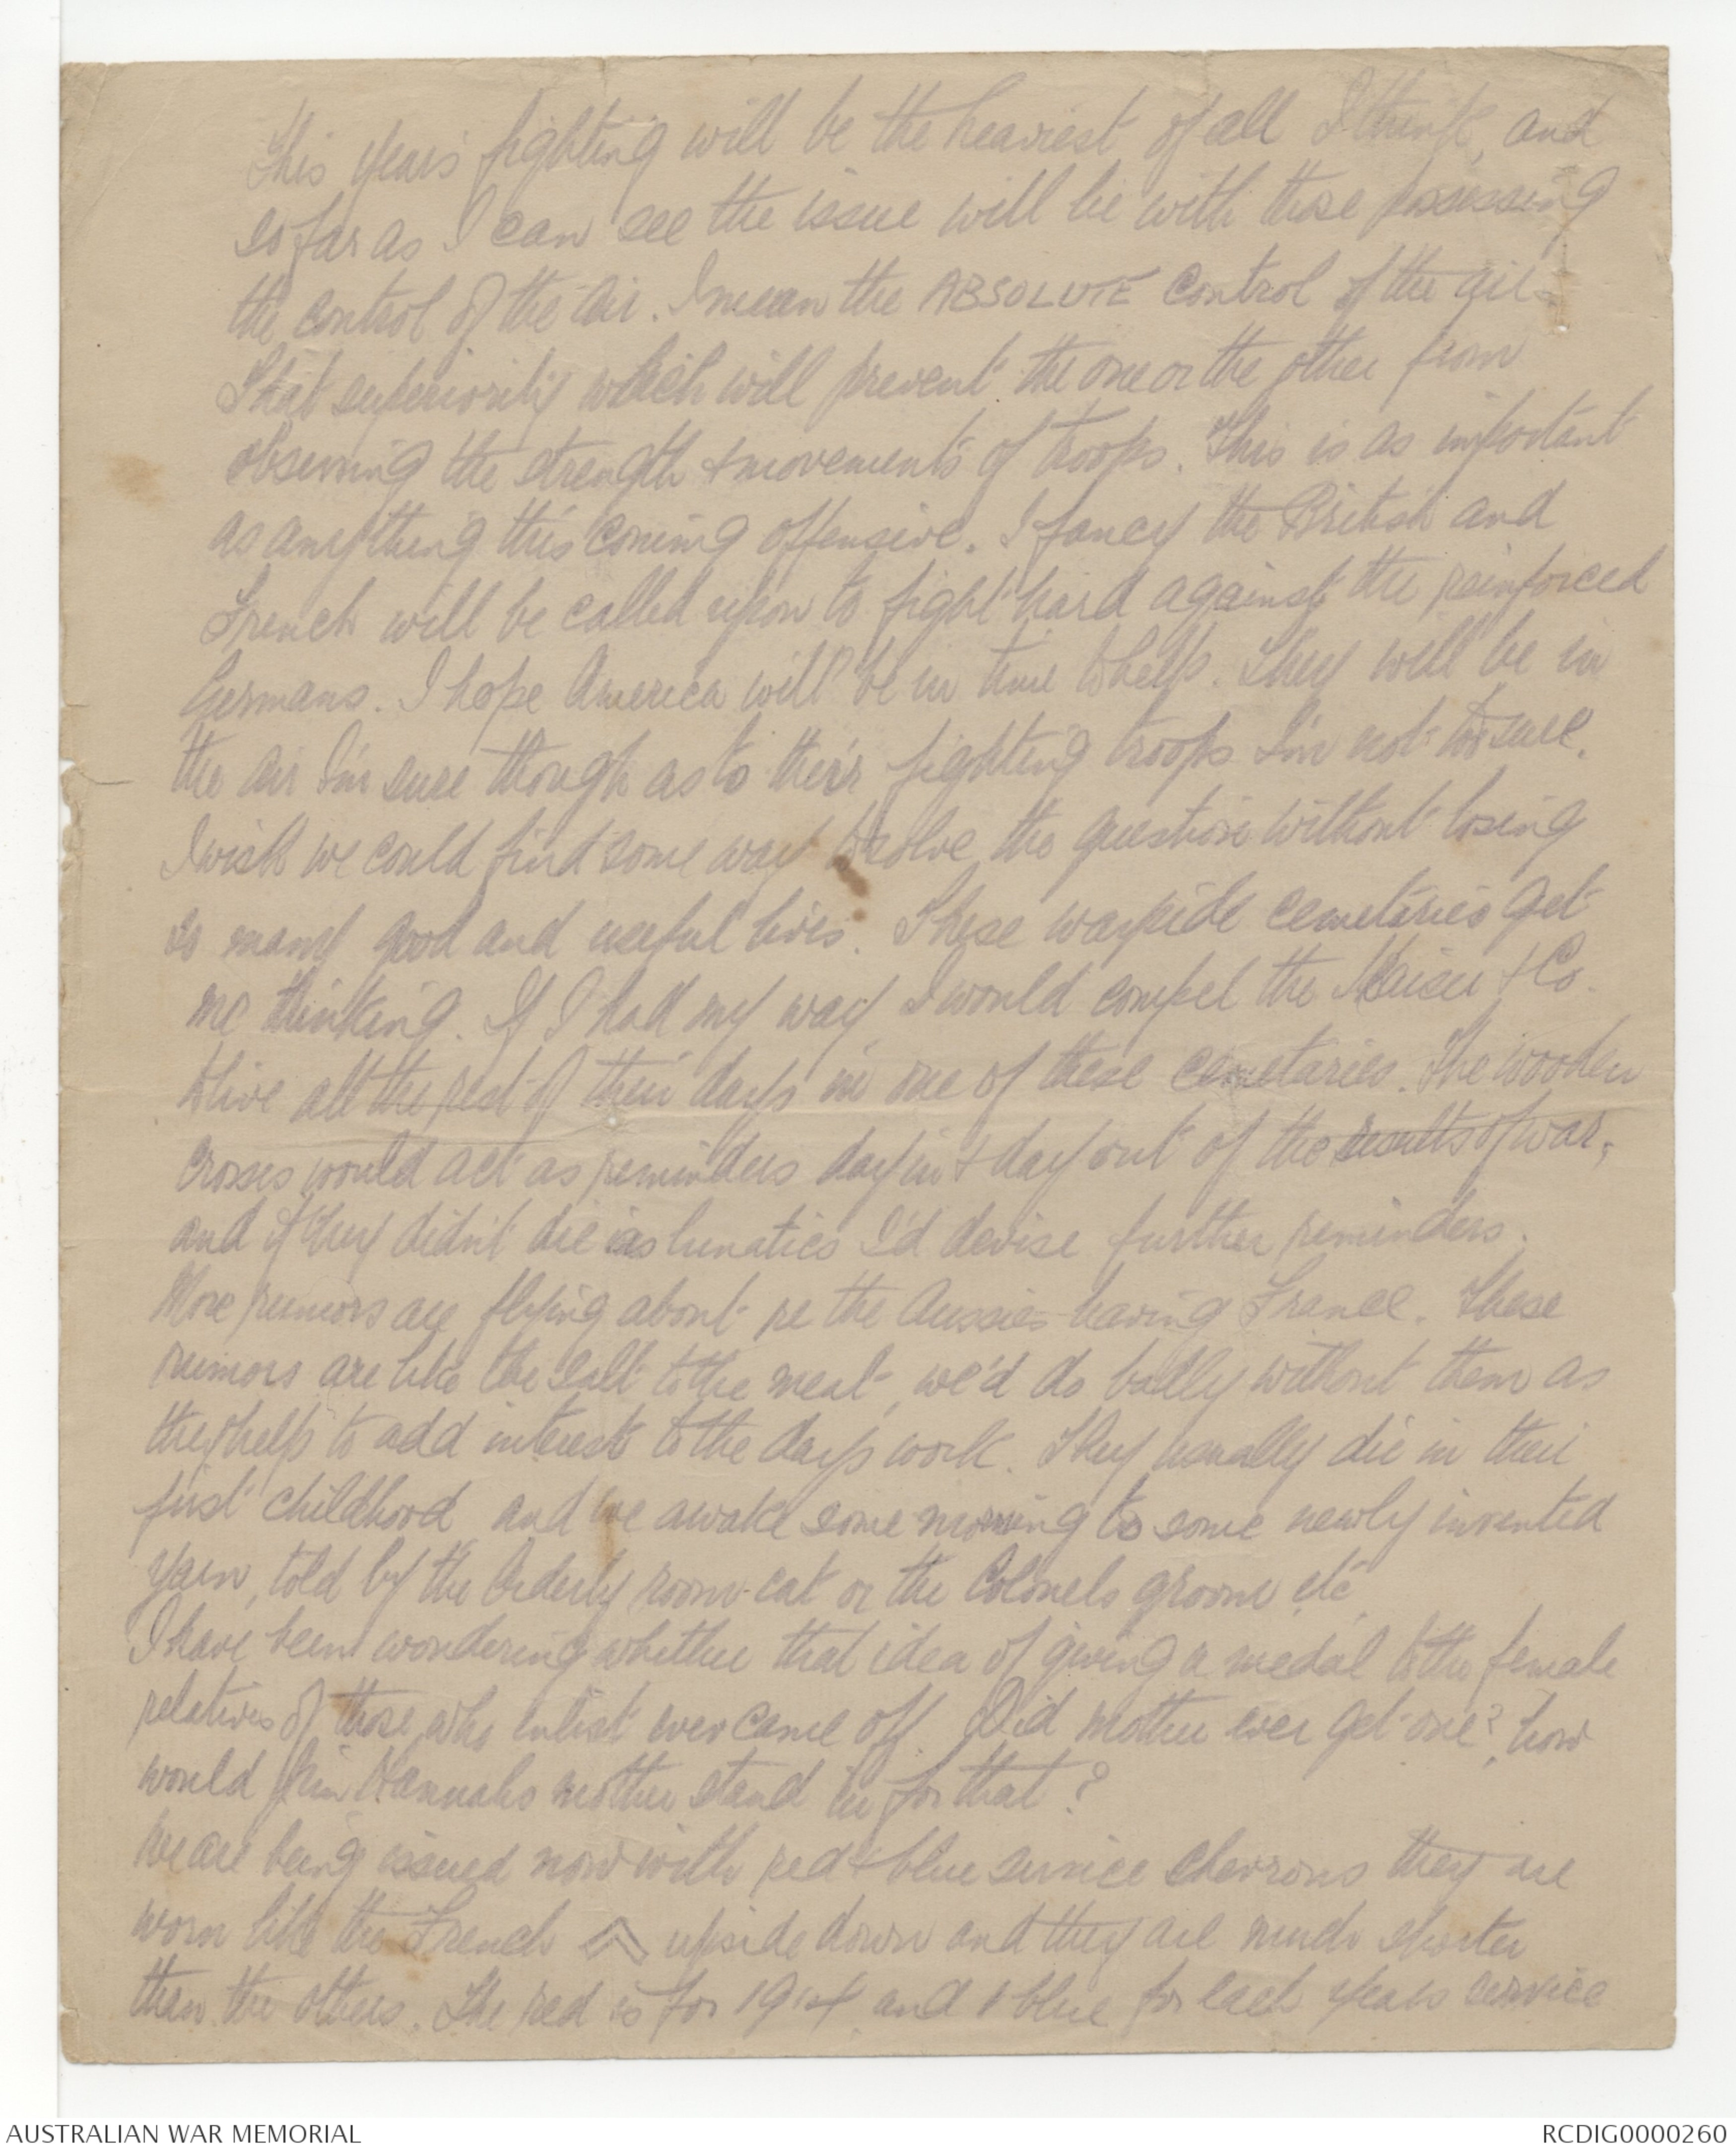 This years fighting will be the heaviest of all I think, and
so far as I can see the issue will lie with those possessing
the control of the air. I mean the ABSOLUTE control of the air -
That superiority which will prevent the one or the other from
observing the strength & movements of troops. This is as important
as anything this coming offensive. I fancy the British and
French will be called upon to fight hard against the reinforced
Germans. I hope America will be in time to help. They will be in
the air I'm sure though as to their fighting troops I'm not so sure.
I wish we could find some way to solve the question without losing
so many good and useful lives. These wayside cemetaries get
me thinking. If I had my way I would compel the Kaiser & Co.
to live all the rest of their days in one of these cemetaries. The wooden
crosses would act as reminders day in & day out of the results of war,
and if they didn't die as lunatics I'd devise further reminders.
More rumors are flying about re the Aussies leaving France. These
rumors are like the salt to the meat, we'd do badly without them as
they help to add interest to the days work. They usually die in their
first childhood and we awake some morning to some newly invented
yarn, told by the Orderly room cat or the Colonels groom etc
I have been wondering whether that idea of giving a medal to the female
relatives of those who enlist ever came off. Did mother ever get one?, how
would Jim Hannahs mother stand in for that?
We are being issued now with red & blue service chevrons they are
worn like the French ^ upside down and they are much shorter
than the others. The red is for 1914 and 1 blue for each years service
AUSTRALIAN WAR MEMORIAL
RCDIG0000260